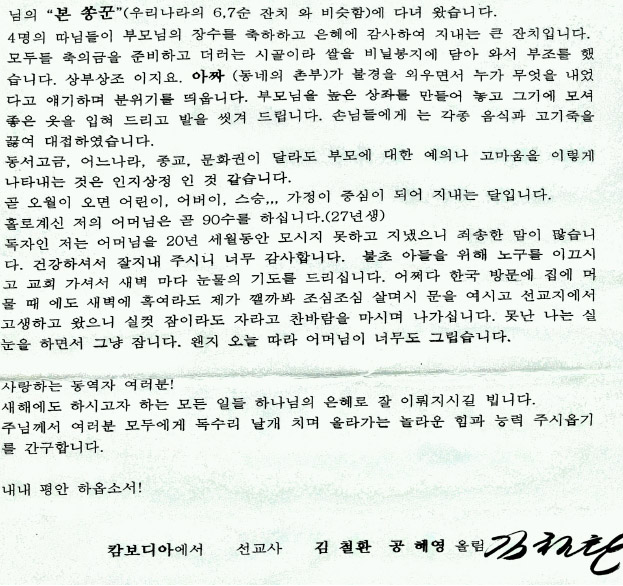 님의 “본 쏭꾼”(우리나라의 6,7순 잔치 와 비슷함)에 다녀 왔습니다.
4명의 따님들이 부모님의 장수를 축하하고 은혜에 감사하여 지내는 큰 잔치입니다.
모두들 축의금을 준비하고 더러는 시골이라 쌀을 비닐봉지에 담아 와서 부조를 했
습니다. 상부상조 이지요. 아짜 (동네의 촌부)가 불경을 외우면서 누가 무엇을 내었
다고 얘기하며 분위기를 띄웁니다. 부모님을 높은 상좌를 만들어 놓고 그기에 모셔
좋은 옷을 입혀 드리고 발을 씻겨 드립니다. 손님들에게 는 각종 음식과 고기죽을
끓여 대접하였습니다.
동서고금, 어느나라, 종교, 문화권이 달라도 부모에 대한 예의나 고마움을 이렇게
나타내는 것은 인지상정 인 것 같습니다.
곧 오월이 오면 어린이, 어버이, 스승,,, 가정이 중심이 되어 지내는 달입니다.
홀로계신 저의 어머님은 곧 90수를 하십니다.(27년생)
독자인 저는 어머님을 20년 세월동안 모시지 못하고 지냈으니 죄송한 맘이 많습니
다. 건강하셔서 잘지내 주시니 너무 감사합니다. 불초 아들을 위해 노구를 이끄시
고 교회 가셔서 새벽 마다 눈물의 기도를 드리십니다. 어쩌다 한국 방문에 집에 머
물 때 에도 새벽에 혹여라도 제가 깰까봐 조심조심 살며시 문을 여시고 선교지에서
고생하고 왔으니 실컷 잠이라도 자라고 찬바람을 마시며 나가십니다. 못난 나는 실
눈을 하면서 그냥 잡니다. 왠지 오늘 따라 어머님이 너무도 그립습니다.
사랑하는 동역자 여러분!
새해에도 하시고자 하는 모든 일들 하나님의 은혜로 잘 이뤄지시길 빕니다.
주님께서 여러분 모두에게 독수리 날개 치며 올라가는 놀라운 힘과 능력 주시옵기
를 간구합니다.
내내 평안 하옵소서!
캄보디아에서 선교사 김 철환 공 혜영 올림 김철환